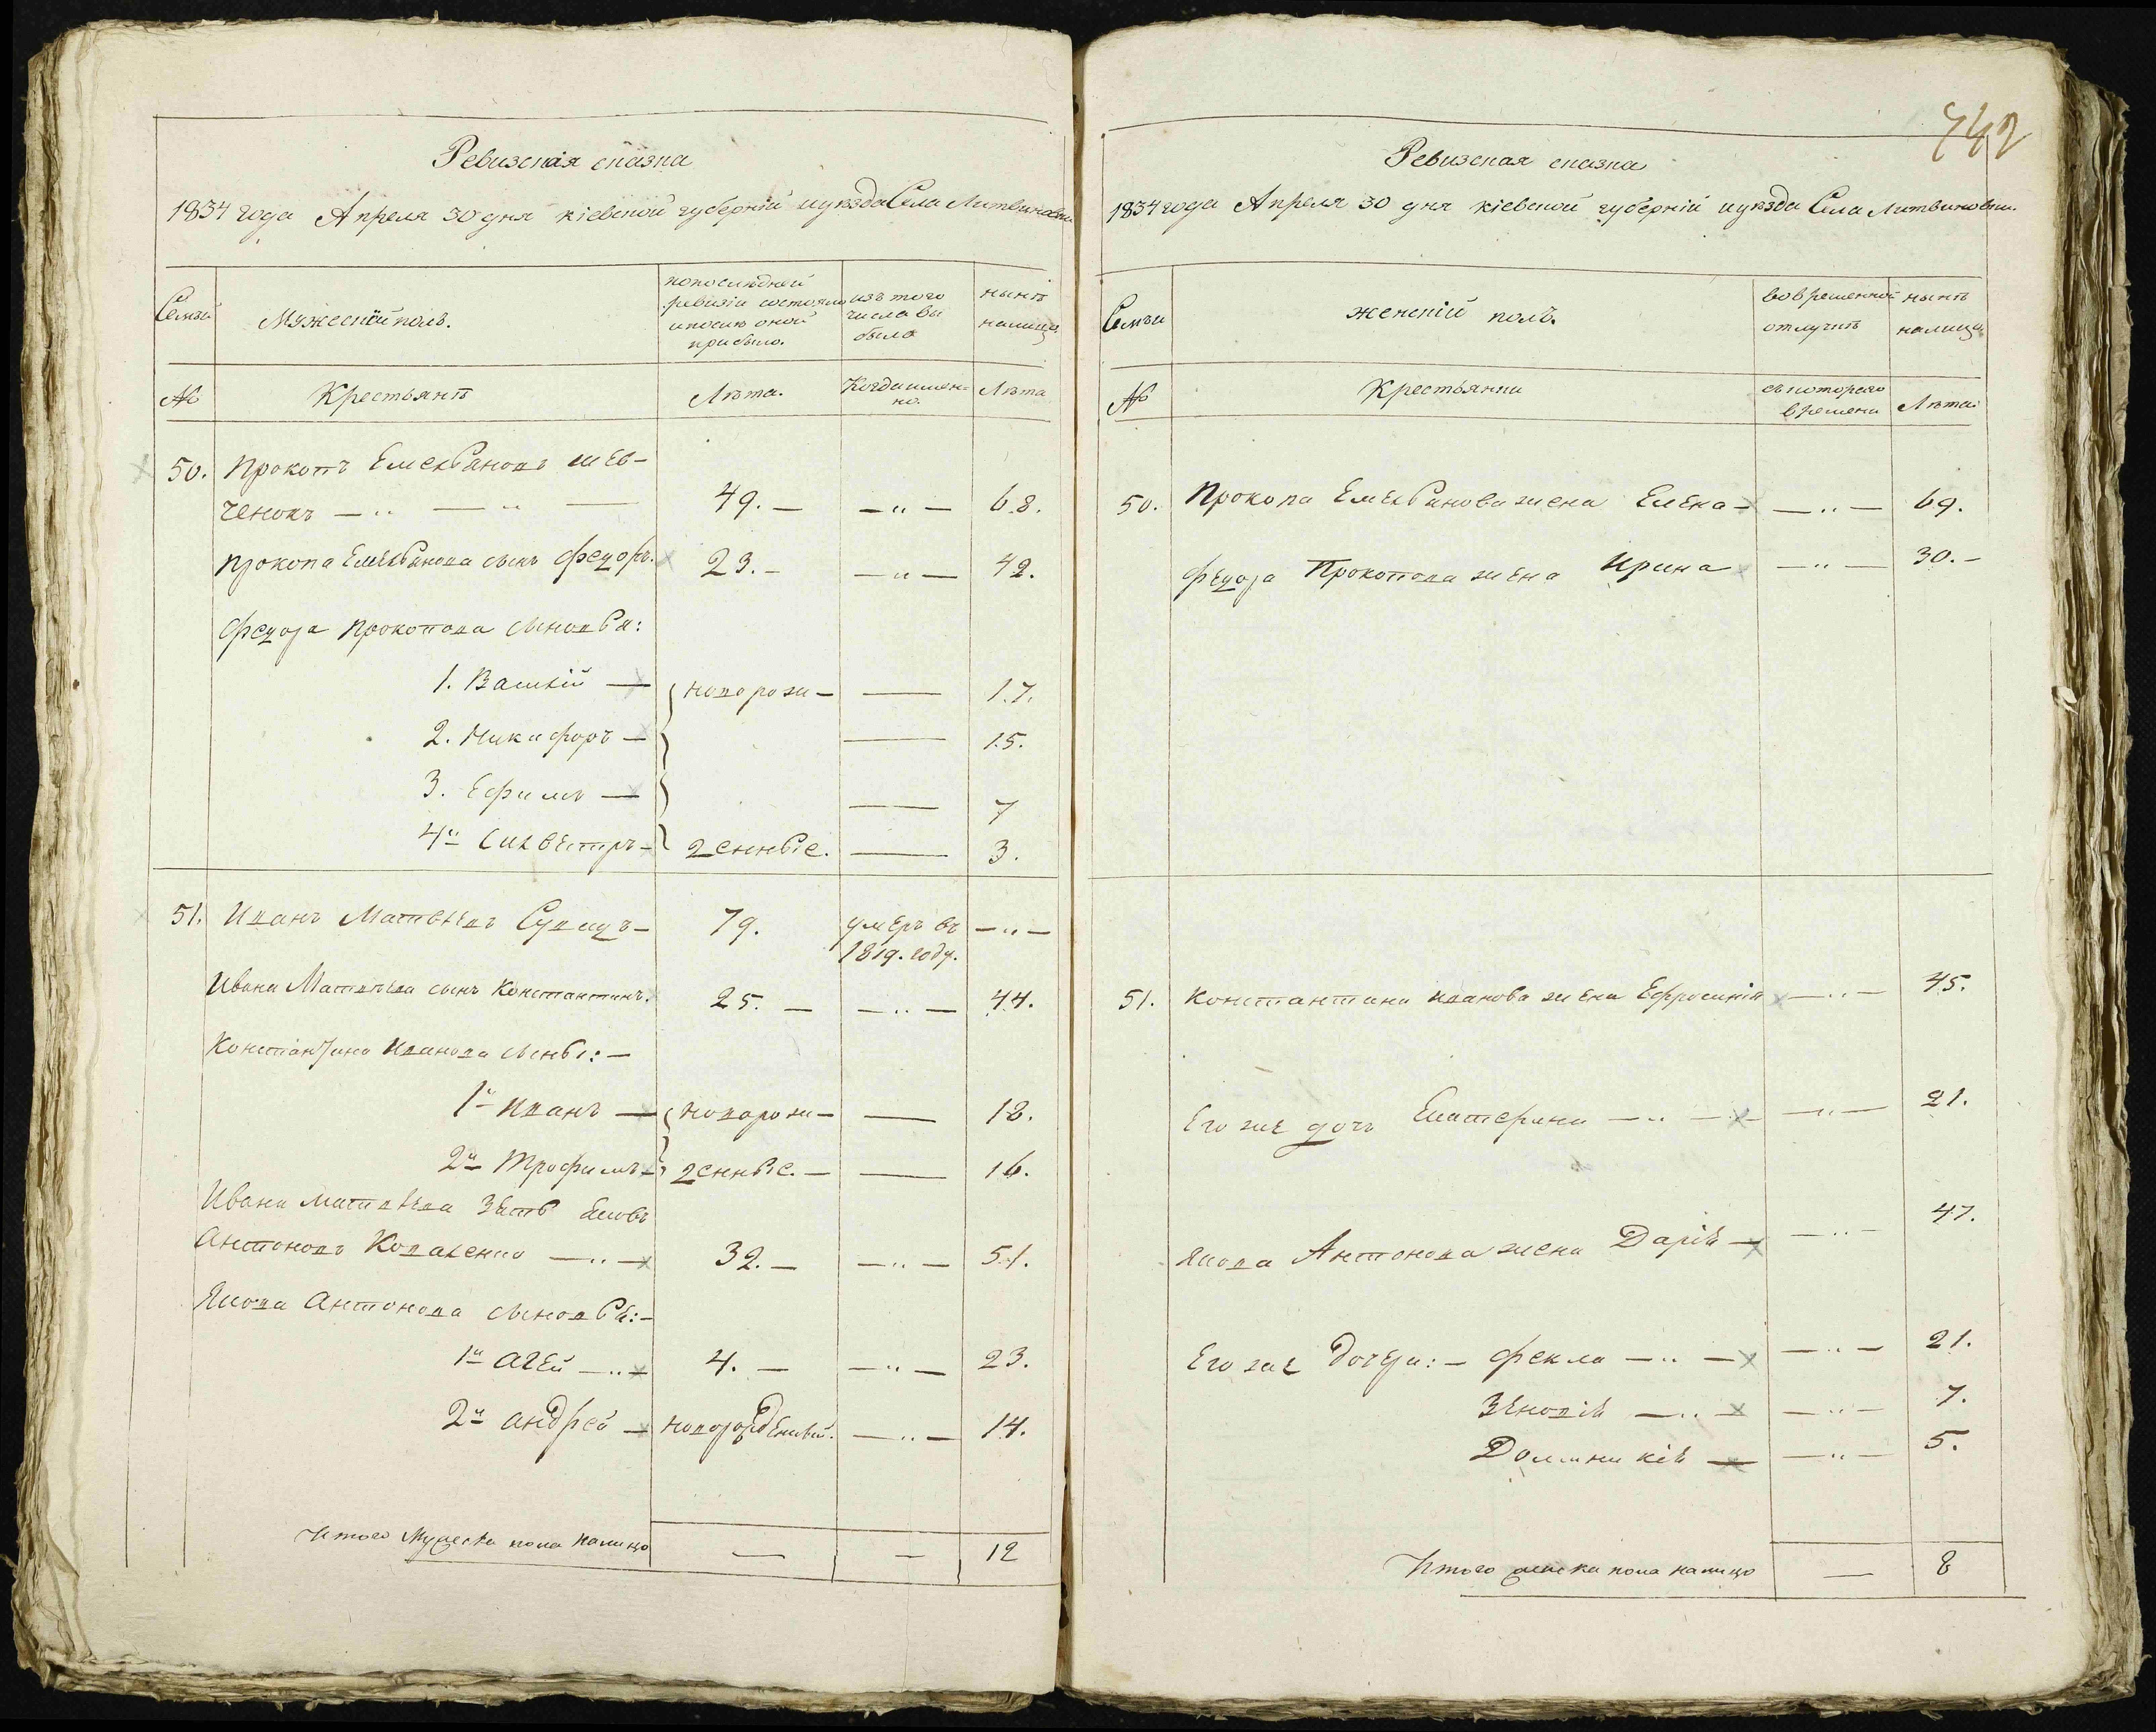 Ревизская сказка
1834 года Апреля 30 дня кіевской губерній иуѣзда Села Литвиновки
Семьи
Мужескій полъ.
попослѣдней
ревизіи состояло
ипослѣ оной
прибыло.
изъ того
числа вы
было
нынѣ
налицо
№
Крестьянѣ
Лѣта.
Когдаимен-
но.
Лѣта
50. Прокопъ Емельяновъ шев-
ченокъ — „ — „ — 49. — — „ — 68.
Прокопа Емельянова сынъ Федоръ. 23. — — „ — 42.
Федора Прокопова сыновья:
1. Василій — новорож- — 17.
2. Никифоръ — — 15.
3. Ефимъ — — 7
4й Силвестръ — денные. — 3.
51. Иванъ Матвѣевъ Супецъ — 79. умеръ въ — „ —
1819. году.
Ивана Матвѣева сынъ Константинъ. 25. — — „ — 44.
Константина Иванова сыны: —
1й Иванъ — новорож- — 18.
2й Трофимъ — денные. — — 16.
Ивана Матвѣева Зять Яковъ
Антоновъ Коваленко — „ — 32. — — „ — 51.
Якова Антонова сыновья: —
1й Агей — „ — 4. — — „ — 23.
2й Андрей — новорожденный. — „ — 14.
Итого Мужеска пола налицо — — 12
742
Ревизская сказка
1834 года Апреля 30 дня кіевской губерній иуѣзда Села Литвиновки.
Семьи
женскій полъ.
вовременной
отлучкѣ
нынѣ
налицо
№
Крестьянки
скотораго
времени
Лѣта
50. Прокопа Емельянова жена Елена — — „ — 69.
Федора Прокопова жена Ирина — „ — 30. —
51. Константина Иванова жена Ефросинія — „ — 45.
Его же дочь Екатерина — „ — — „ — 21.
Якова Антонова жена Дарія — — „ — 47.
Его же дочери: — Фекла — „ — — „ — 21.
Зеновія — „ — — „ — 7.
Доминикія — — „ — 5.
Итого женска пола налицо — 8